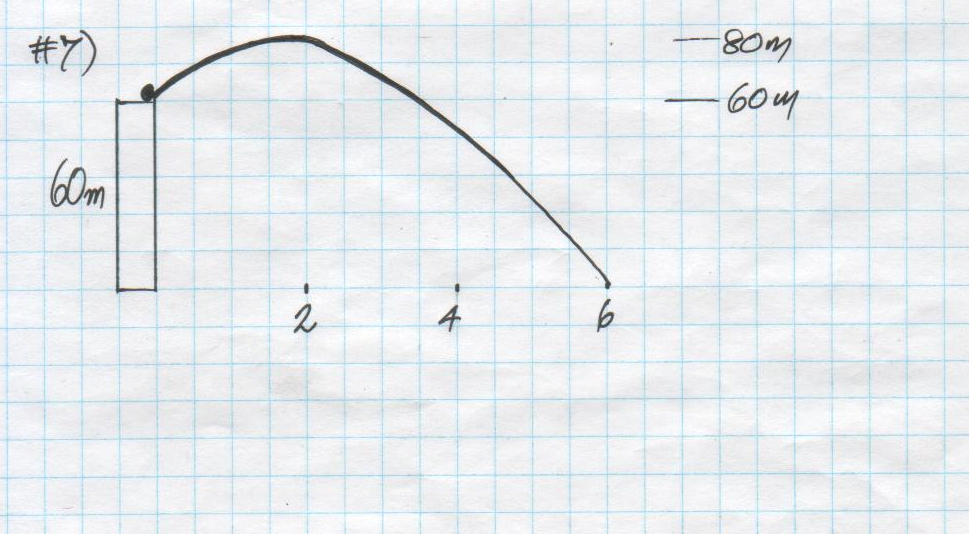 #7)
80m
60m
60m
2 4 6